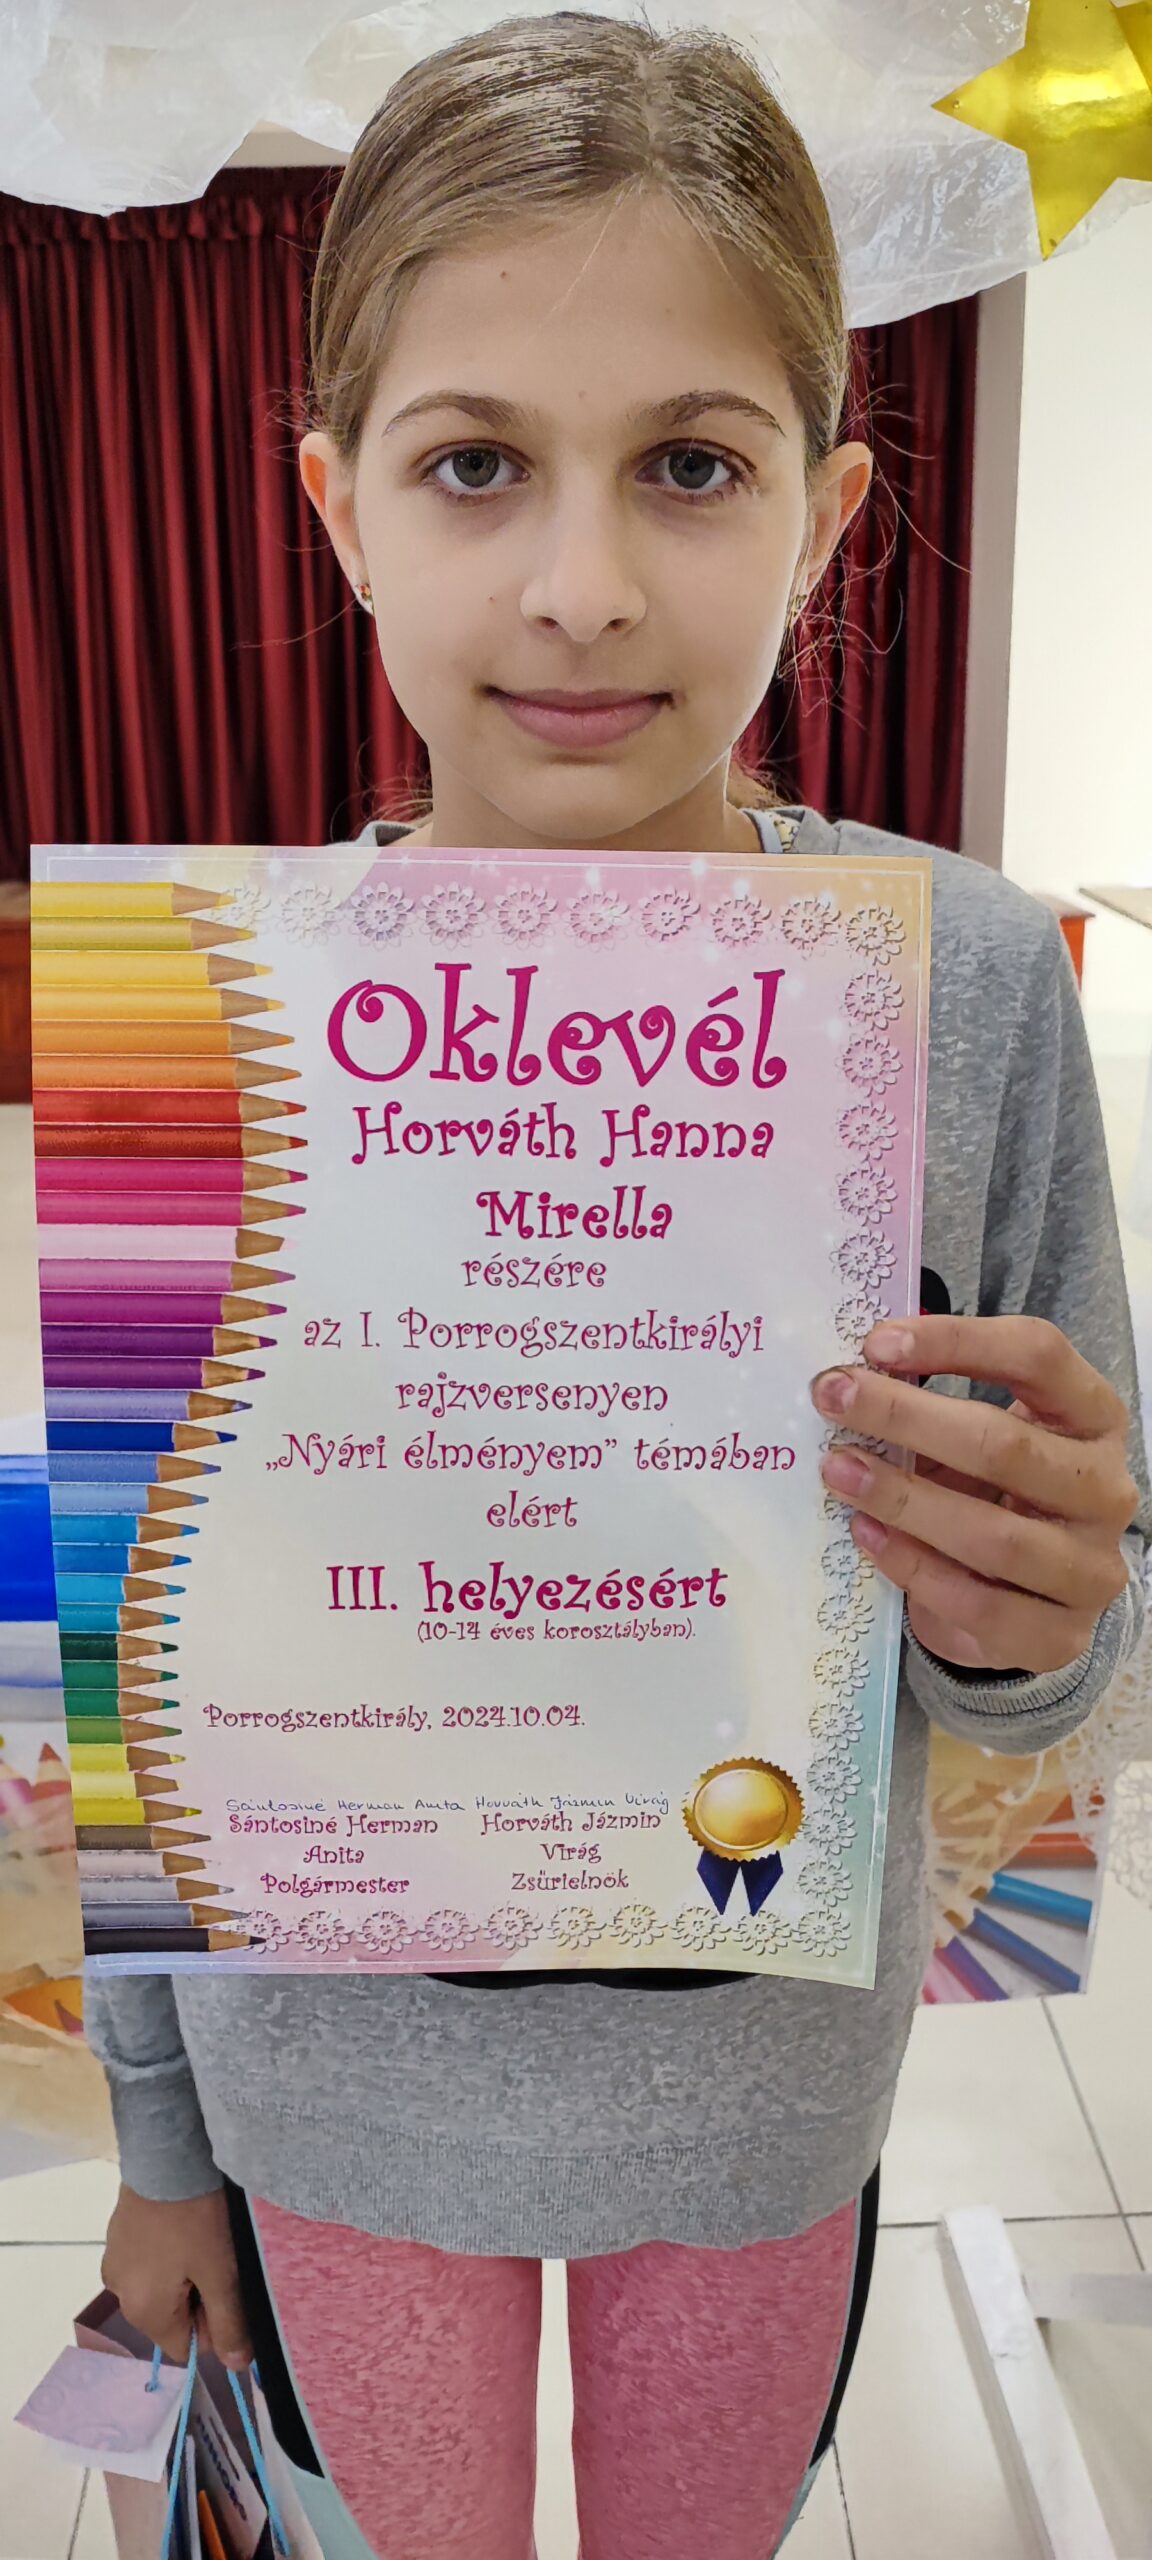 Oklevél
Horváth Hanna
Mirella
részére
az I. Porrogszentkirályi
rajzversenyen
„Nyári élményem” témában
elért
III. helyezésért
(10-14 éves korosztályban).
Porrogszentkirály, 2024.10.04.
Sántosiné Herman Anita Horváth Jázmin Virág
Sántosiné Herman Horváth Jázmin
Anita Virág
Polgármester Zsűrielnök